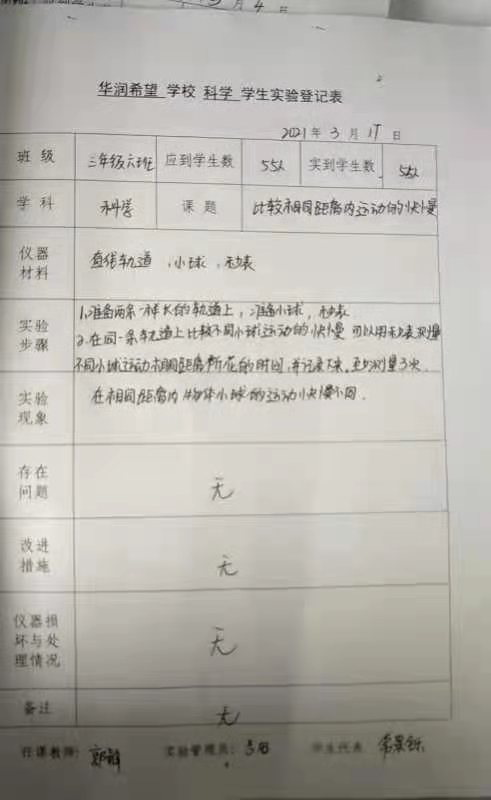 月 4 日
华润希望 学校 科学 学生实验登记表
2021年 3 月 17 日
班 级 三年级六班 应到学生数 55人 实到学生数 55人
学 科 科学 课 题 比较相同距离内运动的快慢
仪器材料 直线轨道 、小球 、秒表
实验步骤 1.准备两条一样长的轨道上,准备小球,秒表.
2.在同一条轨道上比较不同小球运动的快慢 可以用秒表测量
不同小球运动相同距离所花的时间,并记录下来,至少测量3次.
实验现象 在相同距离内物体小球的运动快慢不同.
存在问题 无
改进措施 无
仪器损坏与处理情况 无
备注 无
任课教师: 实验管理员: 学生代表